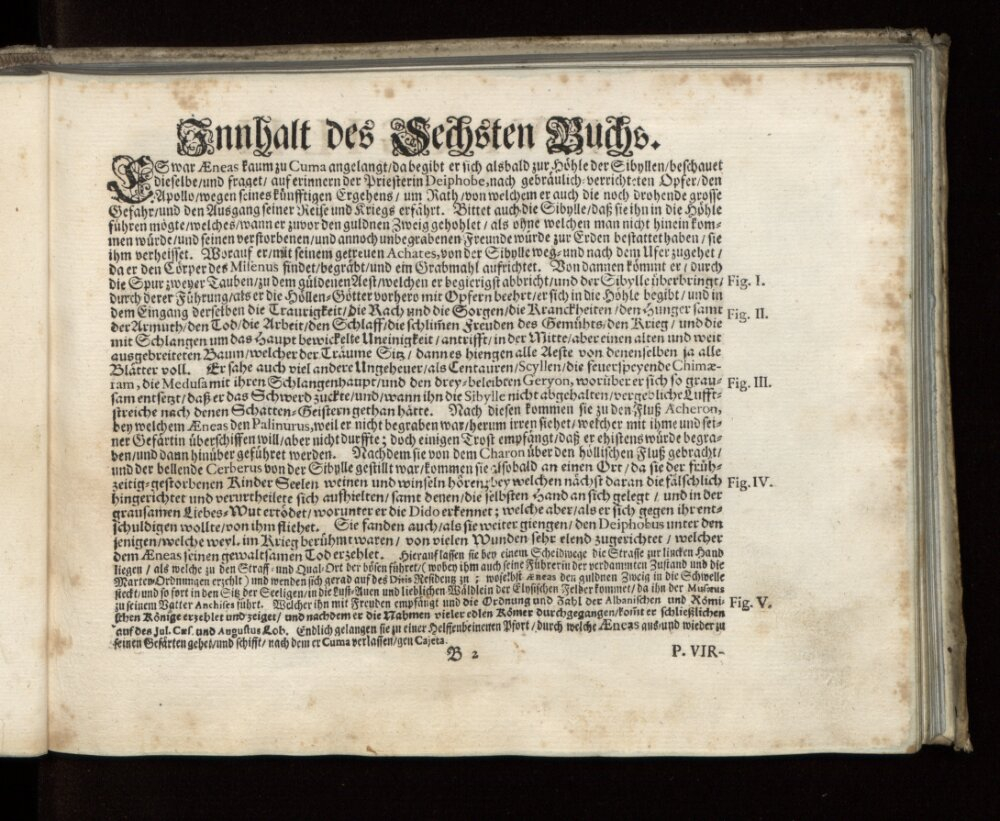 Innhalt des Sechsten Buchs.
ES war Æneas kaum zu Cuma angelangt/da begibt er sich alsbald zur Höhle der Sibyllen/beschauet
dieselbe/und fraget/ auf erinnern der Priesterin Deiphobe, nach gebräulich-verrichteten Opfer/den
Apollo/wegen seines künfftigen Ergehens/ um Rath/von welchem er auch die noch drohende grosse
Gefahr/und den Ausgang seiner Reise und Kriegs erfährt. Bittet auch die Sibylle/daß sie ihn in die Höhle
führen mögte/welches/wann er zuvor den guldnen Zweig gehohlet/ als ohne welchen man nicht hinein kom-
men würde/und seinen verstorbenen/und annoch unbegrabenen Freunde würde zur Erden bestattet haben/ sie
ihm verheisset. Worauf er/mit seinem getreuen Achates, von der Sibylle weg-und nach dem Ufer zugehet/
da er den Cörper des Misenus findet/begräbt/und ein Grabmahl aufrichtet. Von dannen kömmt er/ durch
die Spur zweyer Tauben/zu dem güldenen Aest/welchen er begierigst abbricht/und der Sibylle überbringt/ Fig. I.
durch derer Führung/als er die Höllen-Götter vorhero mit Opfern beehrt/er sich in die Höhle begibt/ und in
dem Eingang derselben die Traurigkeit/die Rach und die Sorgen/die Kranckheiten/den Hunger samt Fig. II.
der Armuth/den Tod/die Arbeit/den Schlaff/die schlimen Freuden des Gemühts/den Krieg/ und die
mit Schlangen um das Haupt bewickelte Uneinigkeit/ antrifft/in der Mitte/aber einen alten und weit
ausgebreiteten Baum/welcher der Träume Sitz/ dann es hiengen alle Aeste von denenselben ja alle
Blätter voll. Er sahe auch viel andere Ungeheuer/als Centauren/Scyllen/die feuerspeyende Chimæ-
ram, die Medusa mit ihren Schlangenhaupt/und den drey-beleibten Geryon, worüber er sich so grau- Fig. III.
sam entsetzt/daß er das Schwerd zuckte/und/wann ihn die Sibylle nicht abgehalten/vergebliche Lufft-
streiche nach denen Schatten-Geistern gethan hätte. Nach diesen kommen sie zu den Fluß Acheron,
bey welchem Æneas den Palinurus, weil er nicht begraben war/herum irren siehet/ welcher mit ihme und sei-
ner Gefärtin überschiffen will/aber nicht durffte; doch einigen Trost empfängt/daß er ehistens würde begra-
ben/und dann hinüber geführet werden. Nachdem sie von dem Charon über den höllischen Fluß gebracht/
und der bellende Cerberus von der Sibylle gestillt war/kommen sie alsobald an einen Ort/ da sie der früh-
zeitig-gestorbenen Kinder Seelen weinen und winseln hören; bey welchen nächst daran die fälschlich Fig. IV.
hingerichtet und verurtheilete sich aufhielten/ samt denen/die selbsten Hand an sich gelegt/ und in der
grausamen Liebes-Wut ertödet/worunter er die Dido erkennet; welche aber/als er sich gegen ihr ent-
schuldigen wollte/von ihm fliehet. Sie fanden auch/als sie weiter giengen/ den Deiphobus unter den
jenigen/welche weyl. im Krieg berühmt waren/ von vielen Wunden sehr elend zugerichtet/ welcher
dem Æneas seinen gewaltsamen Tod erzehlet. Hierauf lassen sie bey einem Scheidwege die Strasse zur lincken Hand
liegen/ als welche zu den Straff- und Qual-Ort der bösen führet/( wobey ihm auch seine Führerin der verdammten Zustand und die
Marter-Ordnungen erzehlt ) und wenden sich gerad auf des Ditis Residentz zu; woselbst Æneas den guldnen Zweig in die Schwelle
steckt/und so fort in den Sitz der Seeligen/in die Lust-Auen und lieblichen Wäldlein der Elysischen Felder kommet/da ihn der Musæus
zu seinem Vatter Anchises führt. Welcher ihn mit Freuden empfängt und die Ordnung und Zahl der Albanischen und Römi- Fig. V.
schen Könige erzehlet und zeiget/ und nachdem er die Nahmen vieler edlen Römer durchgegangen/komt er schließlichen
auf des Jul. Cæs. und Augustus Lob. Endlich gelangen sie zu einer Helffenbeinenen Pfort/ durch welche Æneas aus/und wieder zu
seinen Gefärten gehet/und schifft/ nach dem er Cuma verlassen/gen Cajeta.
B 2 P. VIR-